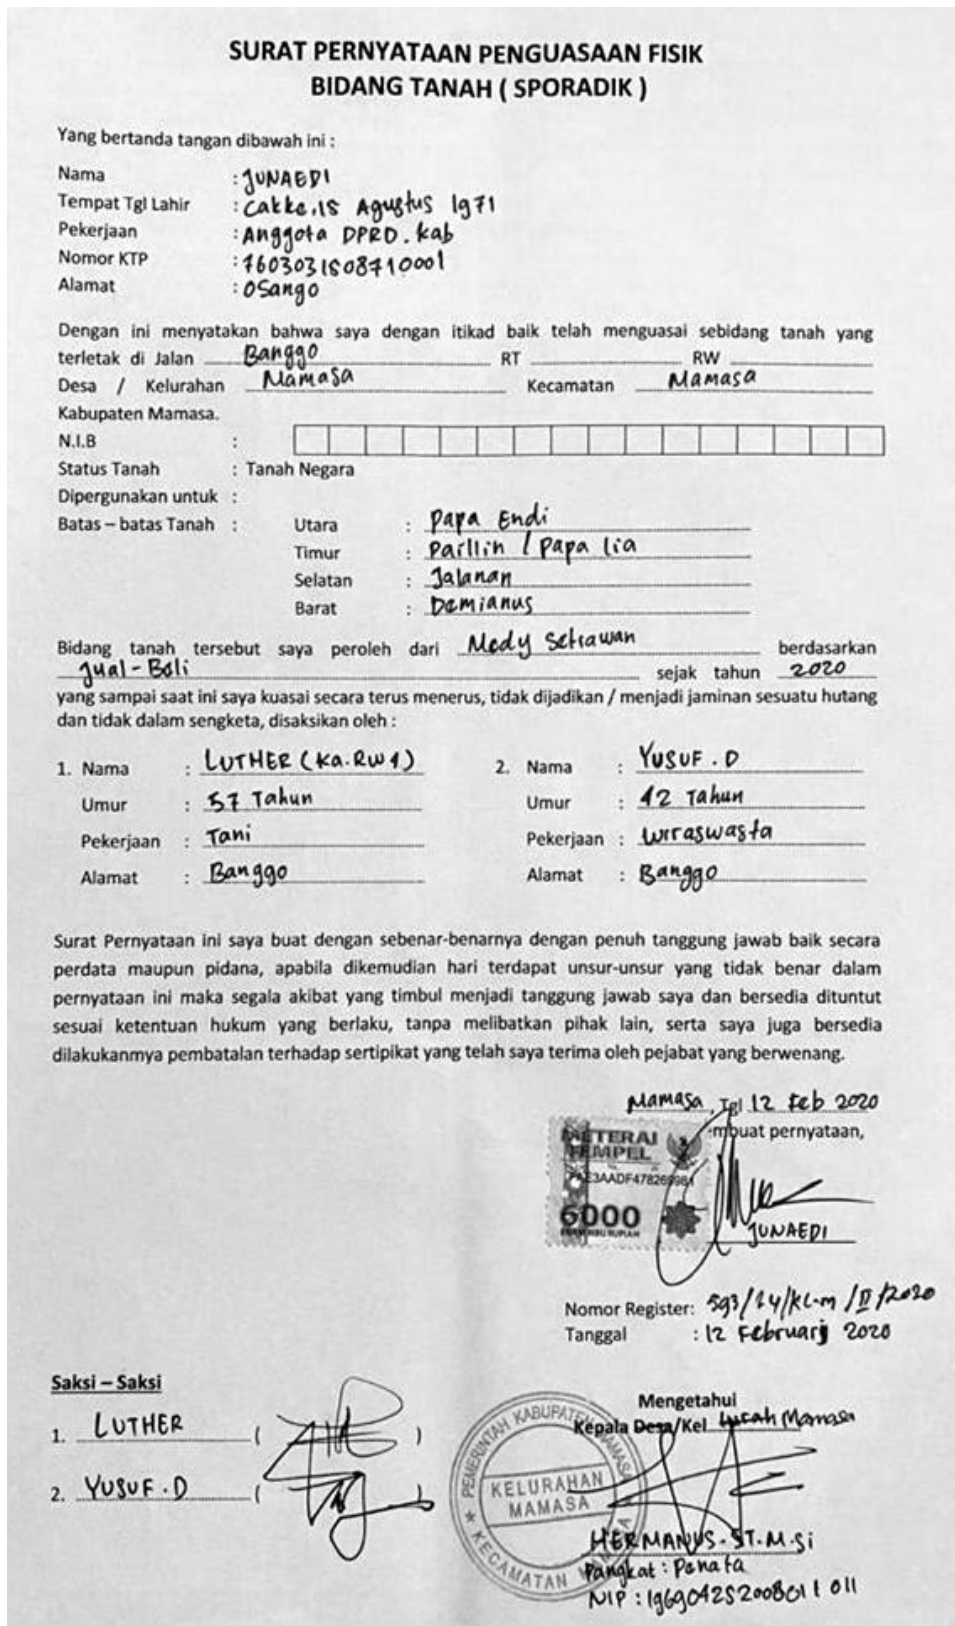 SURAT PERNYATAAN PENGUASAAN FISIK
BIDANG TANAH ( SPORADIK )
Yang bertanda tangan dibawah ini :
Nama : JUNAEDI
Tempat Tgl Lahir : Cakke, 15 Agustus 1971
Pekerjaan : Anggota DPRD. Kab
Nomor KTP : 7603031508710001
Alamat : OSango
Dengan ini menyatakan bahwa saya dengan itikad baik telah menguasai sebidang tanah yang
terletak di Jalan Banggo RT RW
Desa / Kelurahan Mamasa Kecamatan Mamasa
Kabupaten Mamasa.
N.I.B :
Status Tanah : Tanah Negara
Dipergunakan untuk :
Batas – batas Tanah : Utara : Papa Endi
Timur : Parllin / Papa lia
Selatan : Jalanan
Barat : Demianus
Bidang tanah tersebut saya peroleh dari Medy Setiawan berdasarkan
Jual - Beli sejak tahun 2020
yang sampai saat ini saya kuasai secara terus menerus, tidak dijadikan / menjadi jaminan sesuatu hutang
dan tidak dalam sengketa, disaksikan oleh :
1. Nama : LUTHER (Ka. RW 1) 2. Nama : YUSUF . D
Umur : 57 Tahun Umur : 42 Tahun
Pekerjaan : Tani Pekerjaan : Wiraswasta
Alamat : Banggo Alamat : Banggo
Surat Pernyataan ini saya buat dengan sebenar-benarnya dengan penuh tanggung jawab baik secara
perdata maupun pidana, apabila dikemudian hari terdapat unsur-unsur yang tidak benar dalam
pernyataan ini maka segala akibat yang timbul menjadi tanggung jawab saya dan bersedia dituntut
sesuai ketentuan hukum yang berlaku, tanpa melibatkan pihak lain, serta saya juga bersedia
dilakukanmya pembatalan terhadap sertipikat yang telah saya terima oleh pejabat yang berwenang.
Mamasa, Tgl 12 Feb 2020
mbuat pernyataan,
METERAI
TEMPEL
6000
ENAM RIBU RUPIAH
JUNAEDI
Nomor Register: 593/14/KL-m/II/2020
Tanggal : 12 Februarj 2020
Saksi – Saksi
1. LUTHER ( )
2. YUSUF . D ( )
Mengetahui
Kepala Desa/Kel Lurah Mamasa
PEMERINTAH KABUPATEN MAMASA
KELURAHAN
MAMASA
KECAMATAN MAMASA
HERMANUS. ST. M. Si
Pangkat : Penata
NIP : 196904252008011011